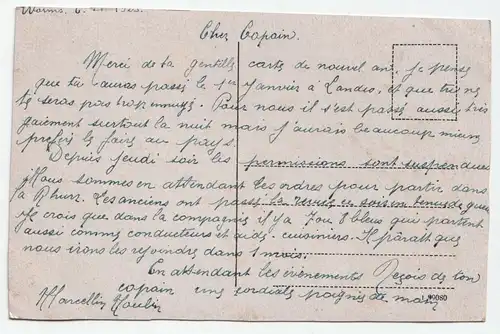 Worms. 6
Cher Copain.
Merci de ta gentille carte de nouvel an. Je pense
que tu auras passé le 1er janvier à Landis, et que tu ne
t'es seras pas trop ennuyé. Pour nous il s'est passé aussi très
gaiement surtout la nuit mais j'aurais beaucoup mieux
préféré le faire au pays.
Depuis jeudi soir les permissions sont suspendues
Nous sommes en attendant les ordres pour partir dans
la Rhurr. Les anciens ont passé la revue
Je crois que dans la compagnie il y a 7 ou 8 bleus qui partent
aussi comme conducteurs et aides-cuisiniers. Il parait que
nous irons les rejoindre dans 1 mois.
En attendant les évènements Reçois de ton
copain une cordiale poignée de main
Marcellin
99080